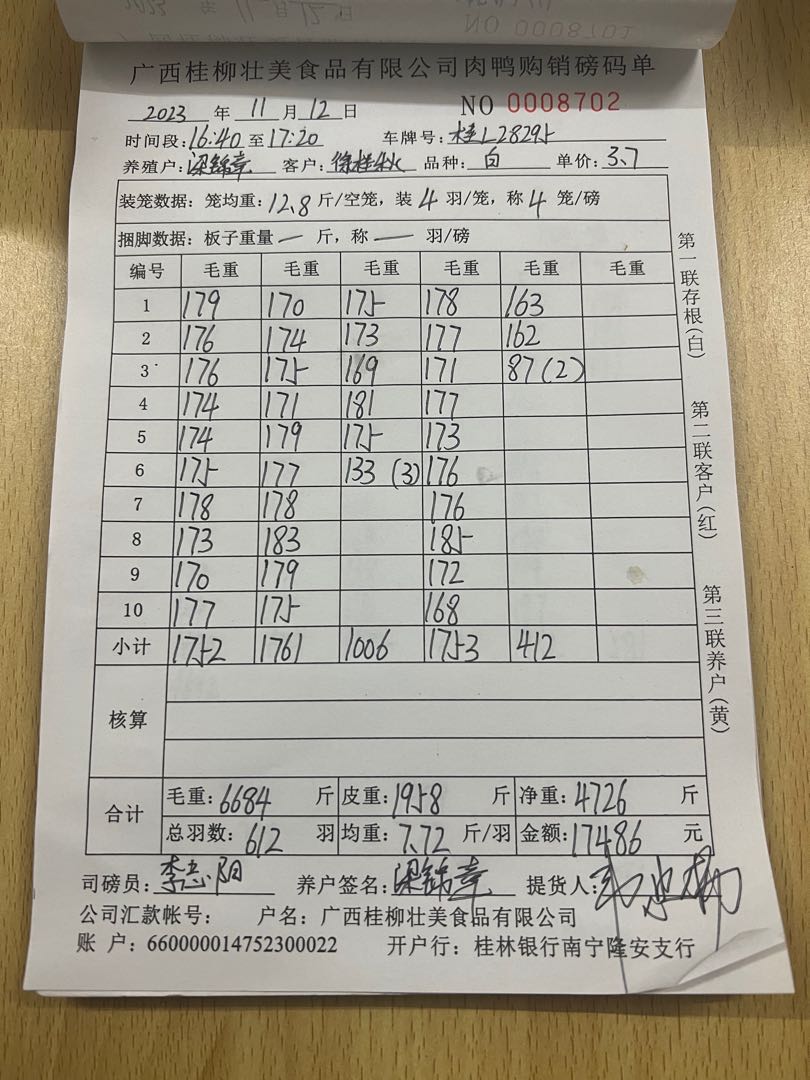 广西桂柳壮美食品有限公司肉鸭购销磅码单
2023 年 11 月 12 日 NO 0008702
时间段:16:40 至 17:20 车牌号:桂L28295
养殖户:梁锦章 客户:徐桂秋 品种:白 单价:3.7
装笼数据:笼均重:12.8 斤/空笼,装 4 羽/笼,称 4 笼/磅
捆脚数据:板子重量 — 斤,称 — 羽/磅
编号 毛重 毛重 毛重 毛重 毛重 毛重
1 179 170 175 178 163
2 176 174 173 177 162
3 176 175 169 171 87(2)
4 174 171 181 177
5 174 179 175 173
6 175 177 133 (3) 176
7 178 178 176
8 173 183 185
9 170 179 172
10 177 175 168
小计 1752 1761 1006 1753 412
核算
合计 毛重:6684 斤 皮重:1958 斤 净重:4726 斤
总羽数:612 羽 均重:7.72 斤/羽 金额:17486 元
司磅员:李忠阳 养户签名:梁锦章 提货人:
公司汇款帐号: 户名:广西桂柳壮美食品有限公司
账 户:660000014752300022 开户行:桂林银行南宁隆安支行
第一联存根(白)
第二联客户(红)
第三联养户(黄)